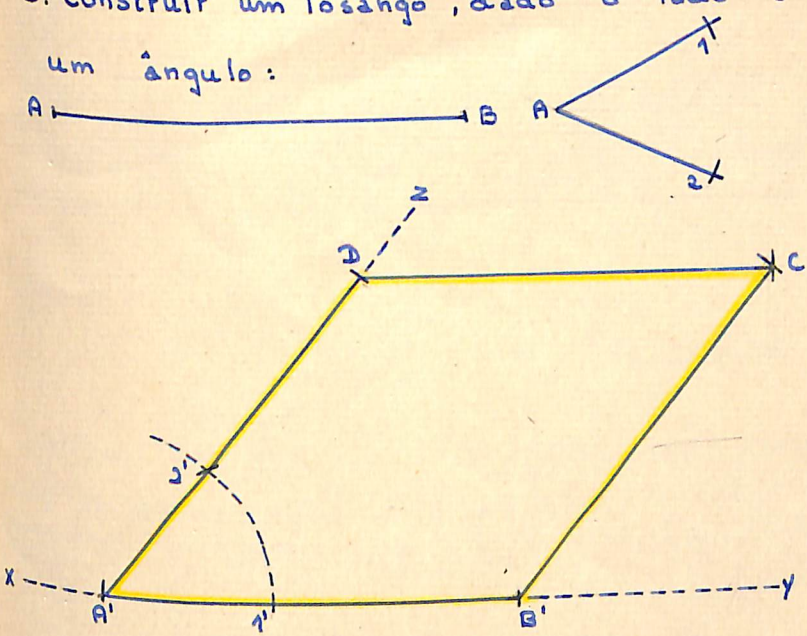 construir um losango, dado o lado e
um ângulo:
A B A 1
2
Z
D C
2'
X A' 1' B' Y